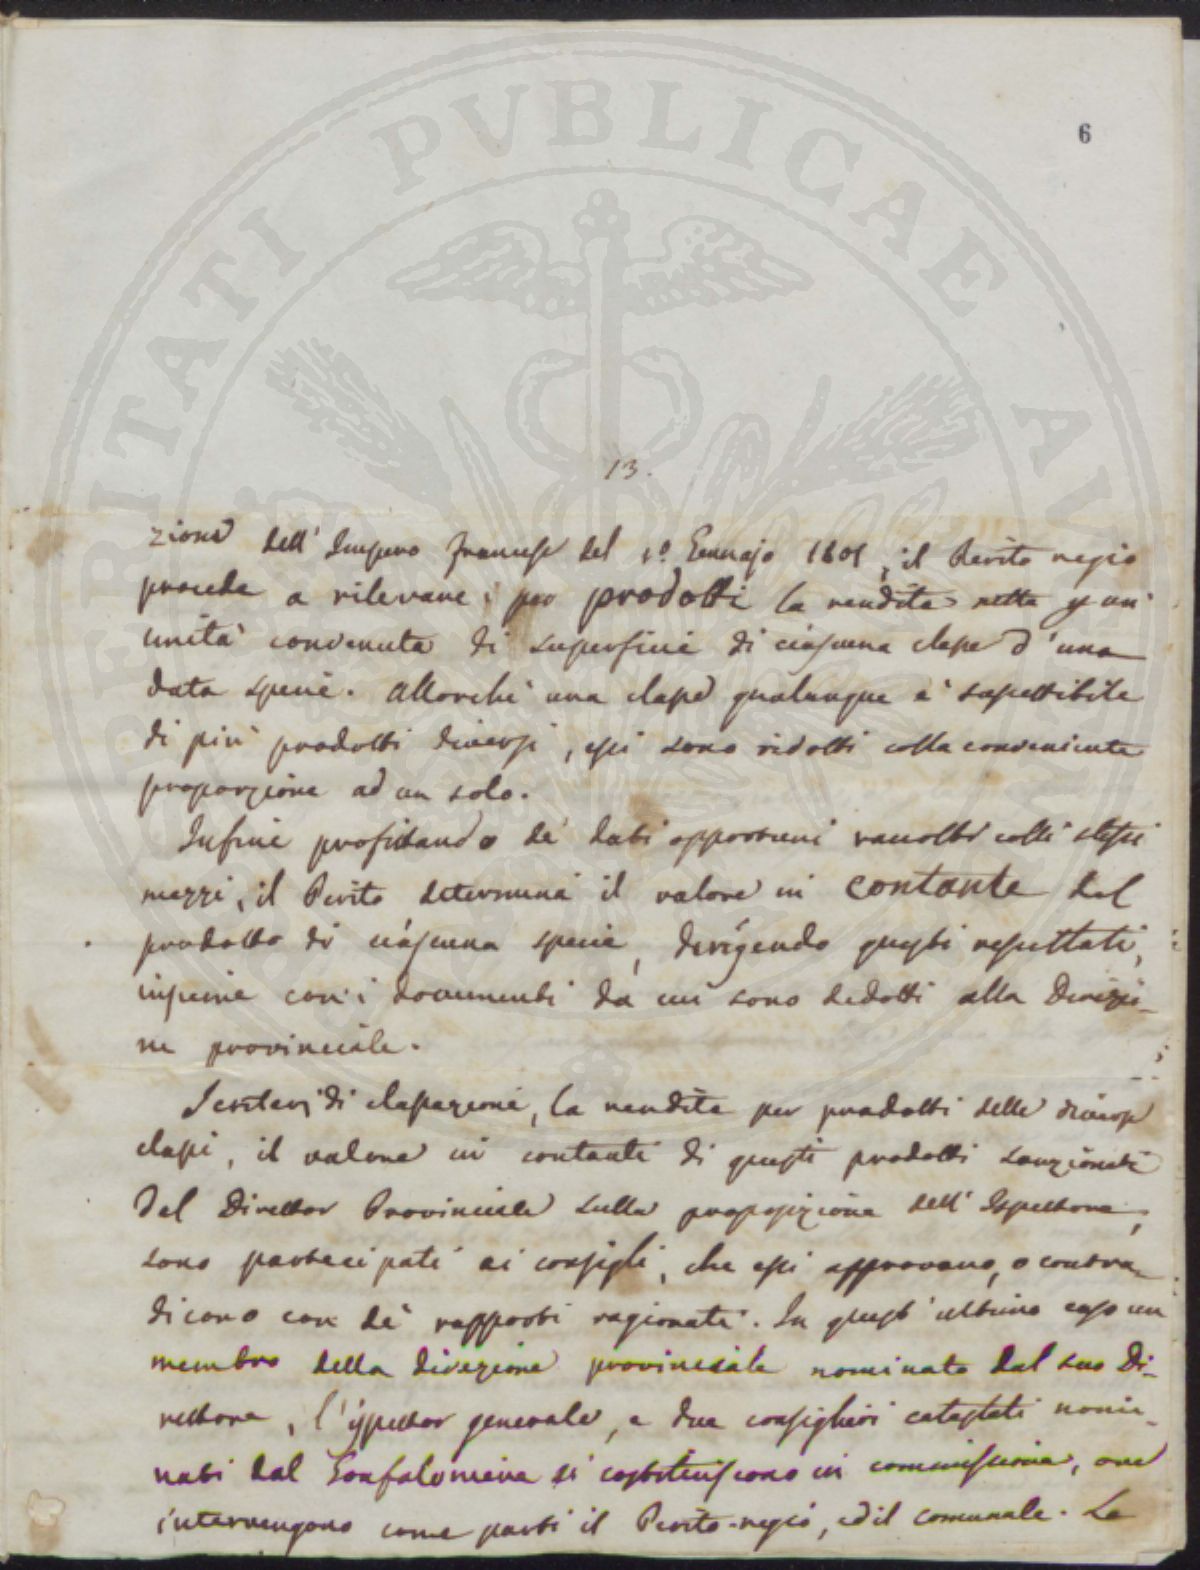 PERITATI PVBLICAE AV
6
13.
zione dell' Impero Francese del 1.º Gennajo 1809, il Perito regio
procede a rilevare; per prodotti la rendita netta p un'
unità convenuta di superficie di ciascuna classe d'una
data specie. Allorchè una classe qualunque è suscettibile
di più prodotti diversi, essi sono ridotti colla conveniente
proporzione ad un solo.
Infine profittando de' dati opportuni raccolti colli stessi
mezzi, il Perito determina il valore in contante del
prodotto di ciascuna specie, dirigendo questi resultati,
insieme con i documenti da cui sono dedotti alla Direzio-
ne provinciale.
I criterj di classazione, la rendita per prodotti delle diverse
classi, il valore in contanti di questi prodotti sanzionati
dal Direttor Provinciale sulla proposizione dell' Ispettore,
sono partecipati ai consigli, che essi approvano, o contra-
dicono con de' rapporti ragionati. In quest' ultimo caso un
membro della direzione provinciale nominato dal suo Di-
rettore, l'ispettor generale, e due consiglieri catastali nomi-
nati dal Gonfaloniere si costituiscono in commissione, ove
intervengono come parti il Perito-regio, ed il comunale. La